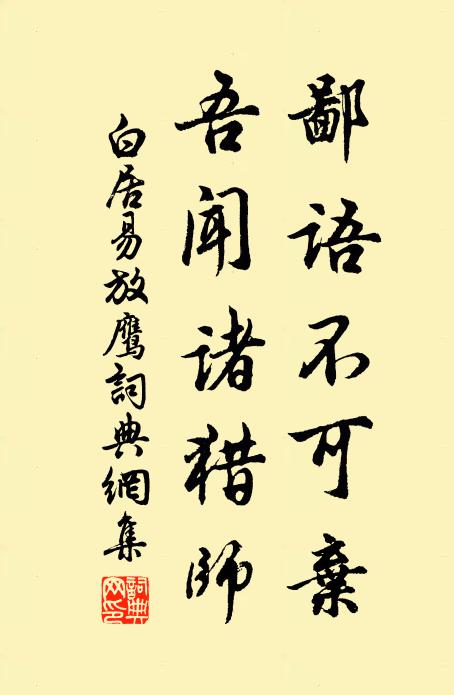 鄙语不可棄
吾闻诸猎师
白居易放鹰詞典網集
詞典網印